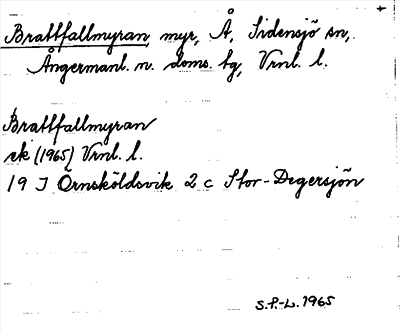 Brattfallmyran, myr, Å, Sidensjö sn,
Ångermanl. n. doms. tg, Vrnl. l.
Brattfallmyran
ek (1965) Vrnl. l.
19 J Örnsköldsvik 2 c Stor-Degersjön
S.P.-L. 1965